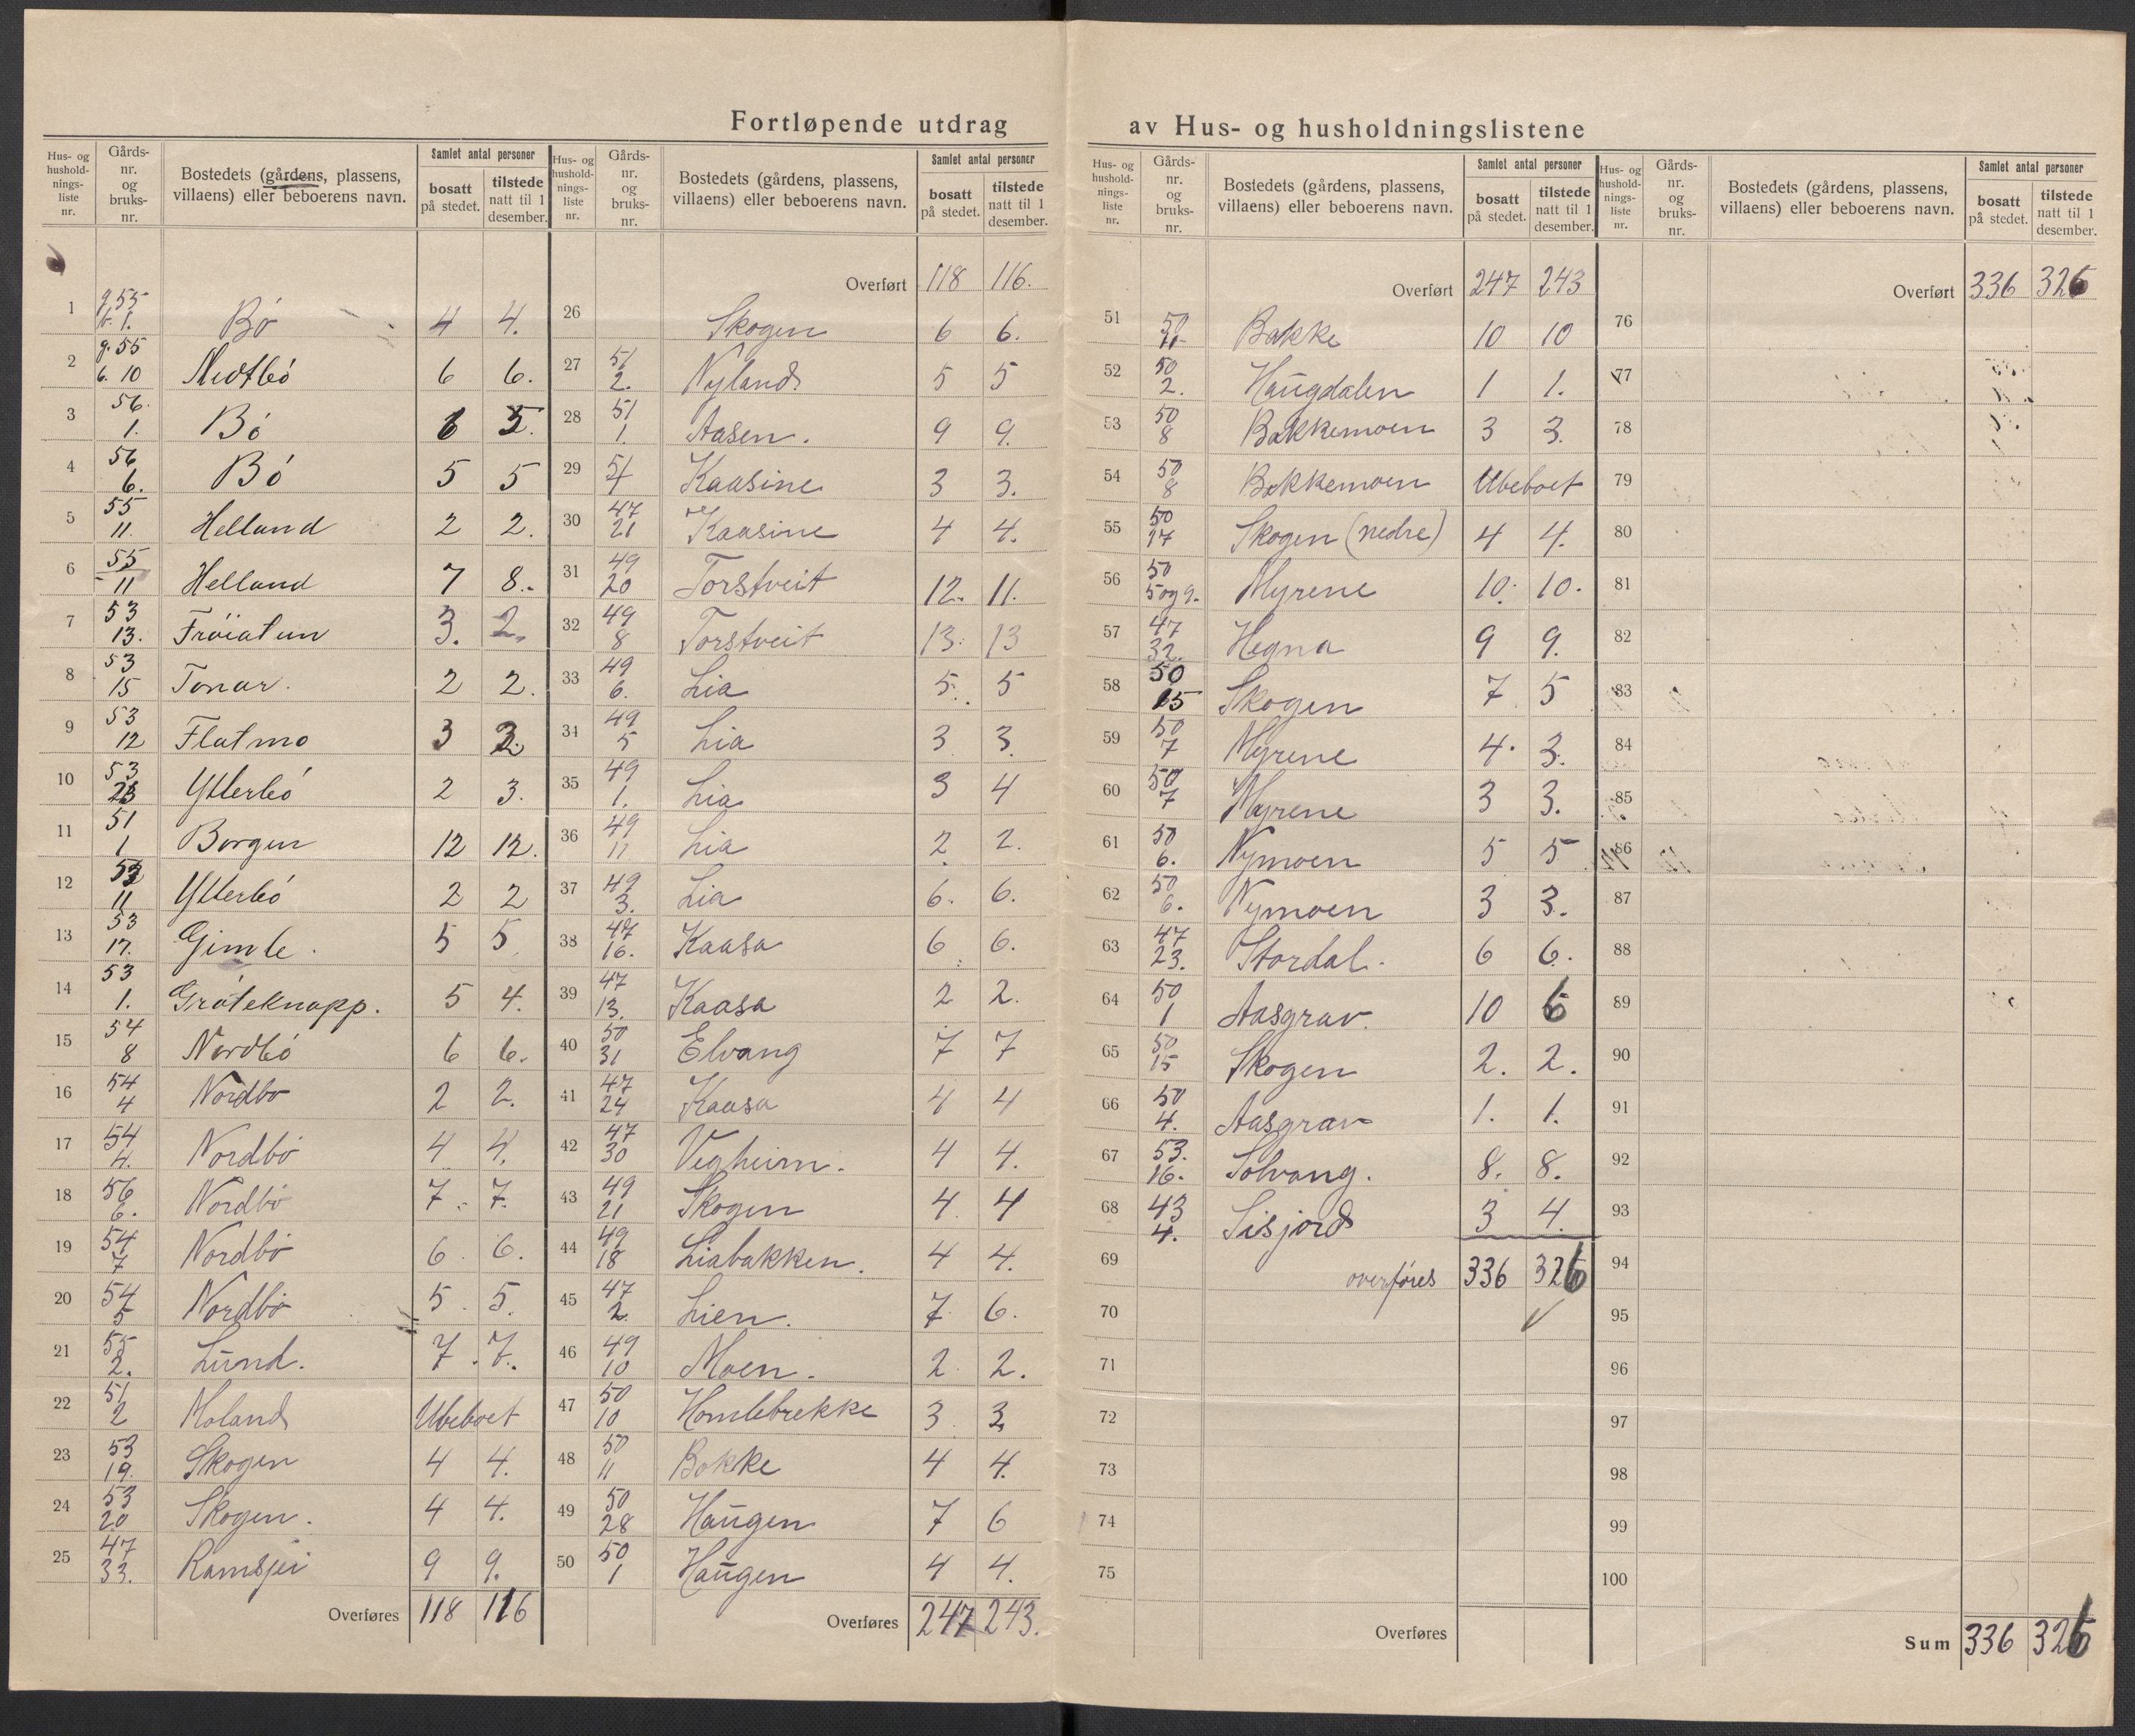 Fortløpende utdrag av Hus- og husholdningslistene
Hus- og husholdnings-liste nr. | Gårds-nr. og bruks-nr. | Bostedets (gårdens, plassens, villaens) eller beboerens navn. | Samlet antal personer bosatt på stedet. | tilstede natt til 1 desember.
1 g. 55 b. 1. Bö 4 4.
2 g. 55 b. 10 Midtbö 6 6.
3 56. 1. Bö 6 5.
4 56 6. Bö 5 5
5 55 11. Helland 2 2.
6 55 11 Helland 7 8.
7 53 13. Fröiatun 3. 2.
8 53 15 Tonar. 2 2.
9 53 12 Flatmo 3 2.
10 53 23 Ytterbö 2 3.
11 51 1 Borgen 12 12.
12 53 11 Ytterbö 2 2
13 53 17. Gimle. 5 5
14 53 1. Gröteknapp. 5 4.
15 54 8 Nordbö 6 6.
16 54 4 Nordbö 2 2.
17 54 4. Nordbö 4 4.
18 56 6. Nordbö 7. 7.
19 54 7 Nordbö 6 6.
20 54 5 Nordbö 5. 5.
21 55 2. Lund. 7. 7.
22 51 2 Moland Ubeboet
23 53 19. Skogen 4 4.
24 53 20 Skogen. 4 4.
25 47 33. Ramsjei 9 9.
Overføres 118 116
Hus- og husholdnings-liste nr. | Gårds-nr. og bruks-nr. | Bostedets (gårdens, plassens, villaens) eller beboerens navn. | Samlet antal personer bosatt på stedet. | tilstede natt til 1 desember.
Overført 118 116.
26 Skogen 6 6.
27 51 2. Nyland 5 5
28 51 1. Aasen. 9 9.
29 51 4 Kaasine 3 3.
30 47 21 Kaasine 4 4.
31 49 20 Torstveit 12. 11.
32 49 8 Torstveit 13. 13
33 49 6. Lia 5. 5
34 49 5 Lia 3 3.
35 49 1. Lia 3 4
36 49 11 Lia 2 2.
37 49 3. Lia 6. 6.
38 47 16. Kaasa 6 6.
39 47 13. Kaasa 2 2.
40 50 31 Elvang 7 7
41 47 24 Kaasa 4 4
42 47 30 Vegheim. 4 4.
43 49 21 Skogen 4. 4
44 49 18 Liabakken. 4 4.
45 47 2. Lien. 7. 6.
46 49 10 Moen. 2. 2.
47 50 10 Homlebrekke 3. 3
48 50 11 Bakke 4 4.
49 50 28 Haugen 7 6
50 50 1 Haugen 4 4.
Overføres 247 243.
Hus- og husholdnings-liste nr. | Gårds-nr. og bruks-nr. | Bostedets (gårdens, plassens, villaens) eller beboerens navn. | Samlet antal personer bosatt på stedet. | tilstede natt til 1 desember.
Overført 247 243
51 50 11 Bakke 10 10
52 50 2. Haugdalen 1 1.
53 50 8 Bakkemoen 3 3.
54 50 8 Bakkemoen Ubeboet
55 50 17 Skogen (nedre) 4 4.
56 50 5 og 9. Myrene 10. 10.
57 47 32. Hegna 9 9.
58 50 15 Skogen 7 5
59 50 7 Myrene 4. 3.
60 50 7 Myrene 3 3.
61 50 6. Nymoen 5 5
62 50 6. Nymoen 3 3.
63 47 23. Stordal. 6 6.
64 50 1 Aasgrav. 10 6
65 50 15 Skogen 2. 2.
66 50 4. Aasgrav 1. 1.
67 53. 16. Solvang. 8. 8.
68 43 4. Sisjord 3 4.
69 overføres 336 326
70
71
72
73
74
75
Overføres
Hus- og husholdnings-liste nr. | Gårds-nr. og bruks-nr. | Bostedets (gårdens, plassens, villaens) eller beboerens navn. | Samlet antal personer bosatt på stedet. | tilstede natt til 1 desember.
Overført 336 326
76
77
78
79
80
81
82
83
84
85
86
87
88
89
90
91
92
93
94
95
96
97
98
99
100
Sum 336 326